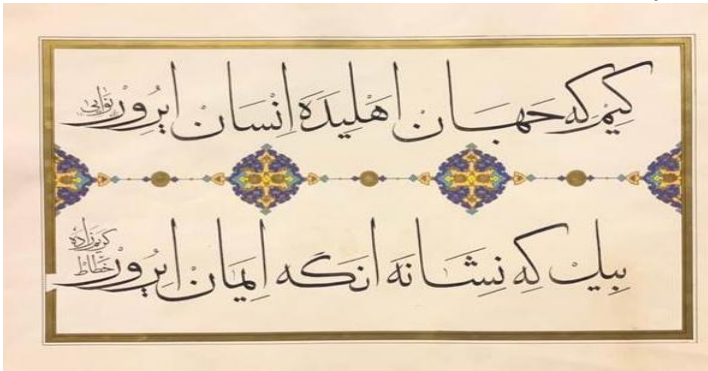 کیم که جهان اهلیده انسان ایرور نوایی
بیل که نشانه انگه ایمان ایرور کریم‌زاده خطاط